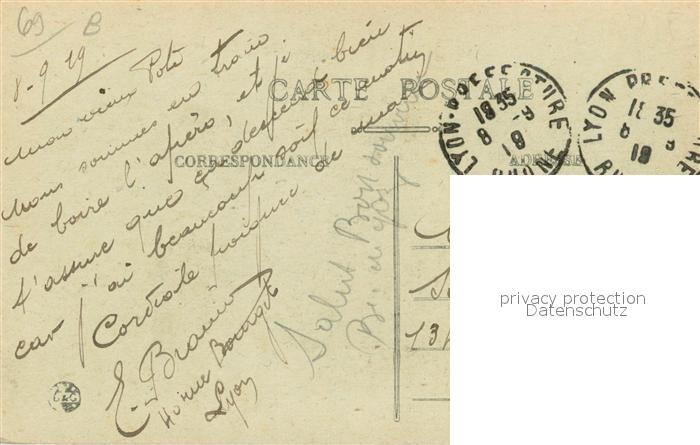 69 B
8-9 19
CARTE POSTALE
Mon vieux Poto
Nous sommes en train
de boire l'apéro, et je
t'assure que ça descend bien
car j'ai beaucoup soif ce matin
Cordiale poignée de main
E. Braun
Lyon
CORRESPONDANCE
ADRESSE
Salut Bonjour
LYON-PREFECTURE
18 35
8 -9
19
RHONE
LYON PREFECTURE
18 35
8 9
19
13
C&C
privacy protection
Datenschutz